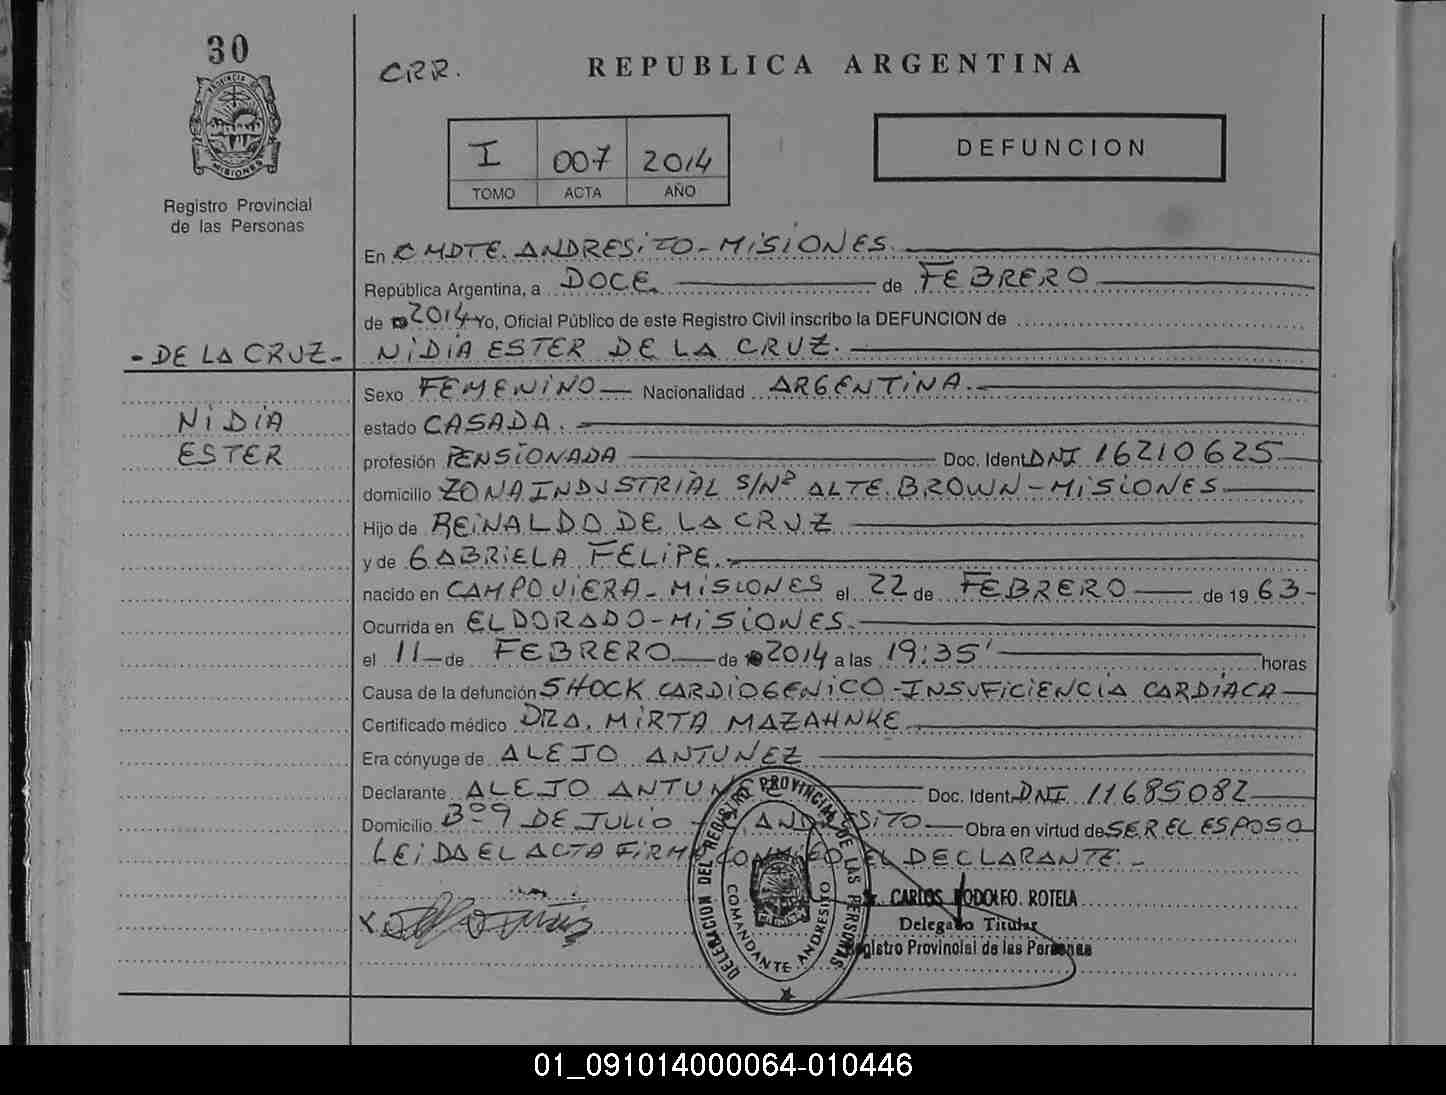 30
CRR.
REPUBLICA ARGENTINA
PROVINCIA DE
MISIONES
I 007 2014
TOMO ACTA AÑO
DEFUNCION
Registro Provincial
de las Personas
En CMDTE. ANDRESITO - MISIONES.
República Argentina, a DOCE de FEBRERO
de 2014 Yo, Oficial Público de este Registro Civil inscribo la DEFUNCION de
- DE LA CRUZ -
NIDIA ESTER DE LA CRUZ.
NIDIA
ESTER
Sexo FEMENINO Nacionalidad ARGENTINA.
estado CASADA.
profesión PENSIONADA Doc. Ident. DNI 16210625
domicilio ZONA INDUSTRIAL S/Nº ALTE. BROWN - MISIONES
Hijo de REINALDO DE LA CRUZ
y de GABRIELA FELIPE.
nacido en CAMPO VIERA - MISIONES el 22 de FEBRERO de 1963
Ocurrida en ELDORADO - MISIONES.
el 11 de FEBRERO de 2014 a las 19:35' horas
Causa de la defunción SHOCK CARDIOGENICO - INSUFICIENCIA CARDIACA
Certificado médico DRA. MIRTA MAZAHNKE
Era cónyuge de ALEJO ANTUNEZ
Declarante ALEJO ANTUNEZ Doc. Ident. DNI 11685082
Domicilio Bº 9 DE JULIO - C. ANDRESITO Obra en virtud de SER EL ESPOSO
LEIDA EL ACTA FIRMA CONMIGO EL DECLARANTE. -
DELEGACION DEL REGISTRO PROVINCIAL DE LAS PERSONAS
COMANDANTE ANDRESITO
CARLOS RODOLFO ROTELA
Delegado Titular
Registro Provincial de las Personas
01_091014000064-010446